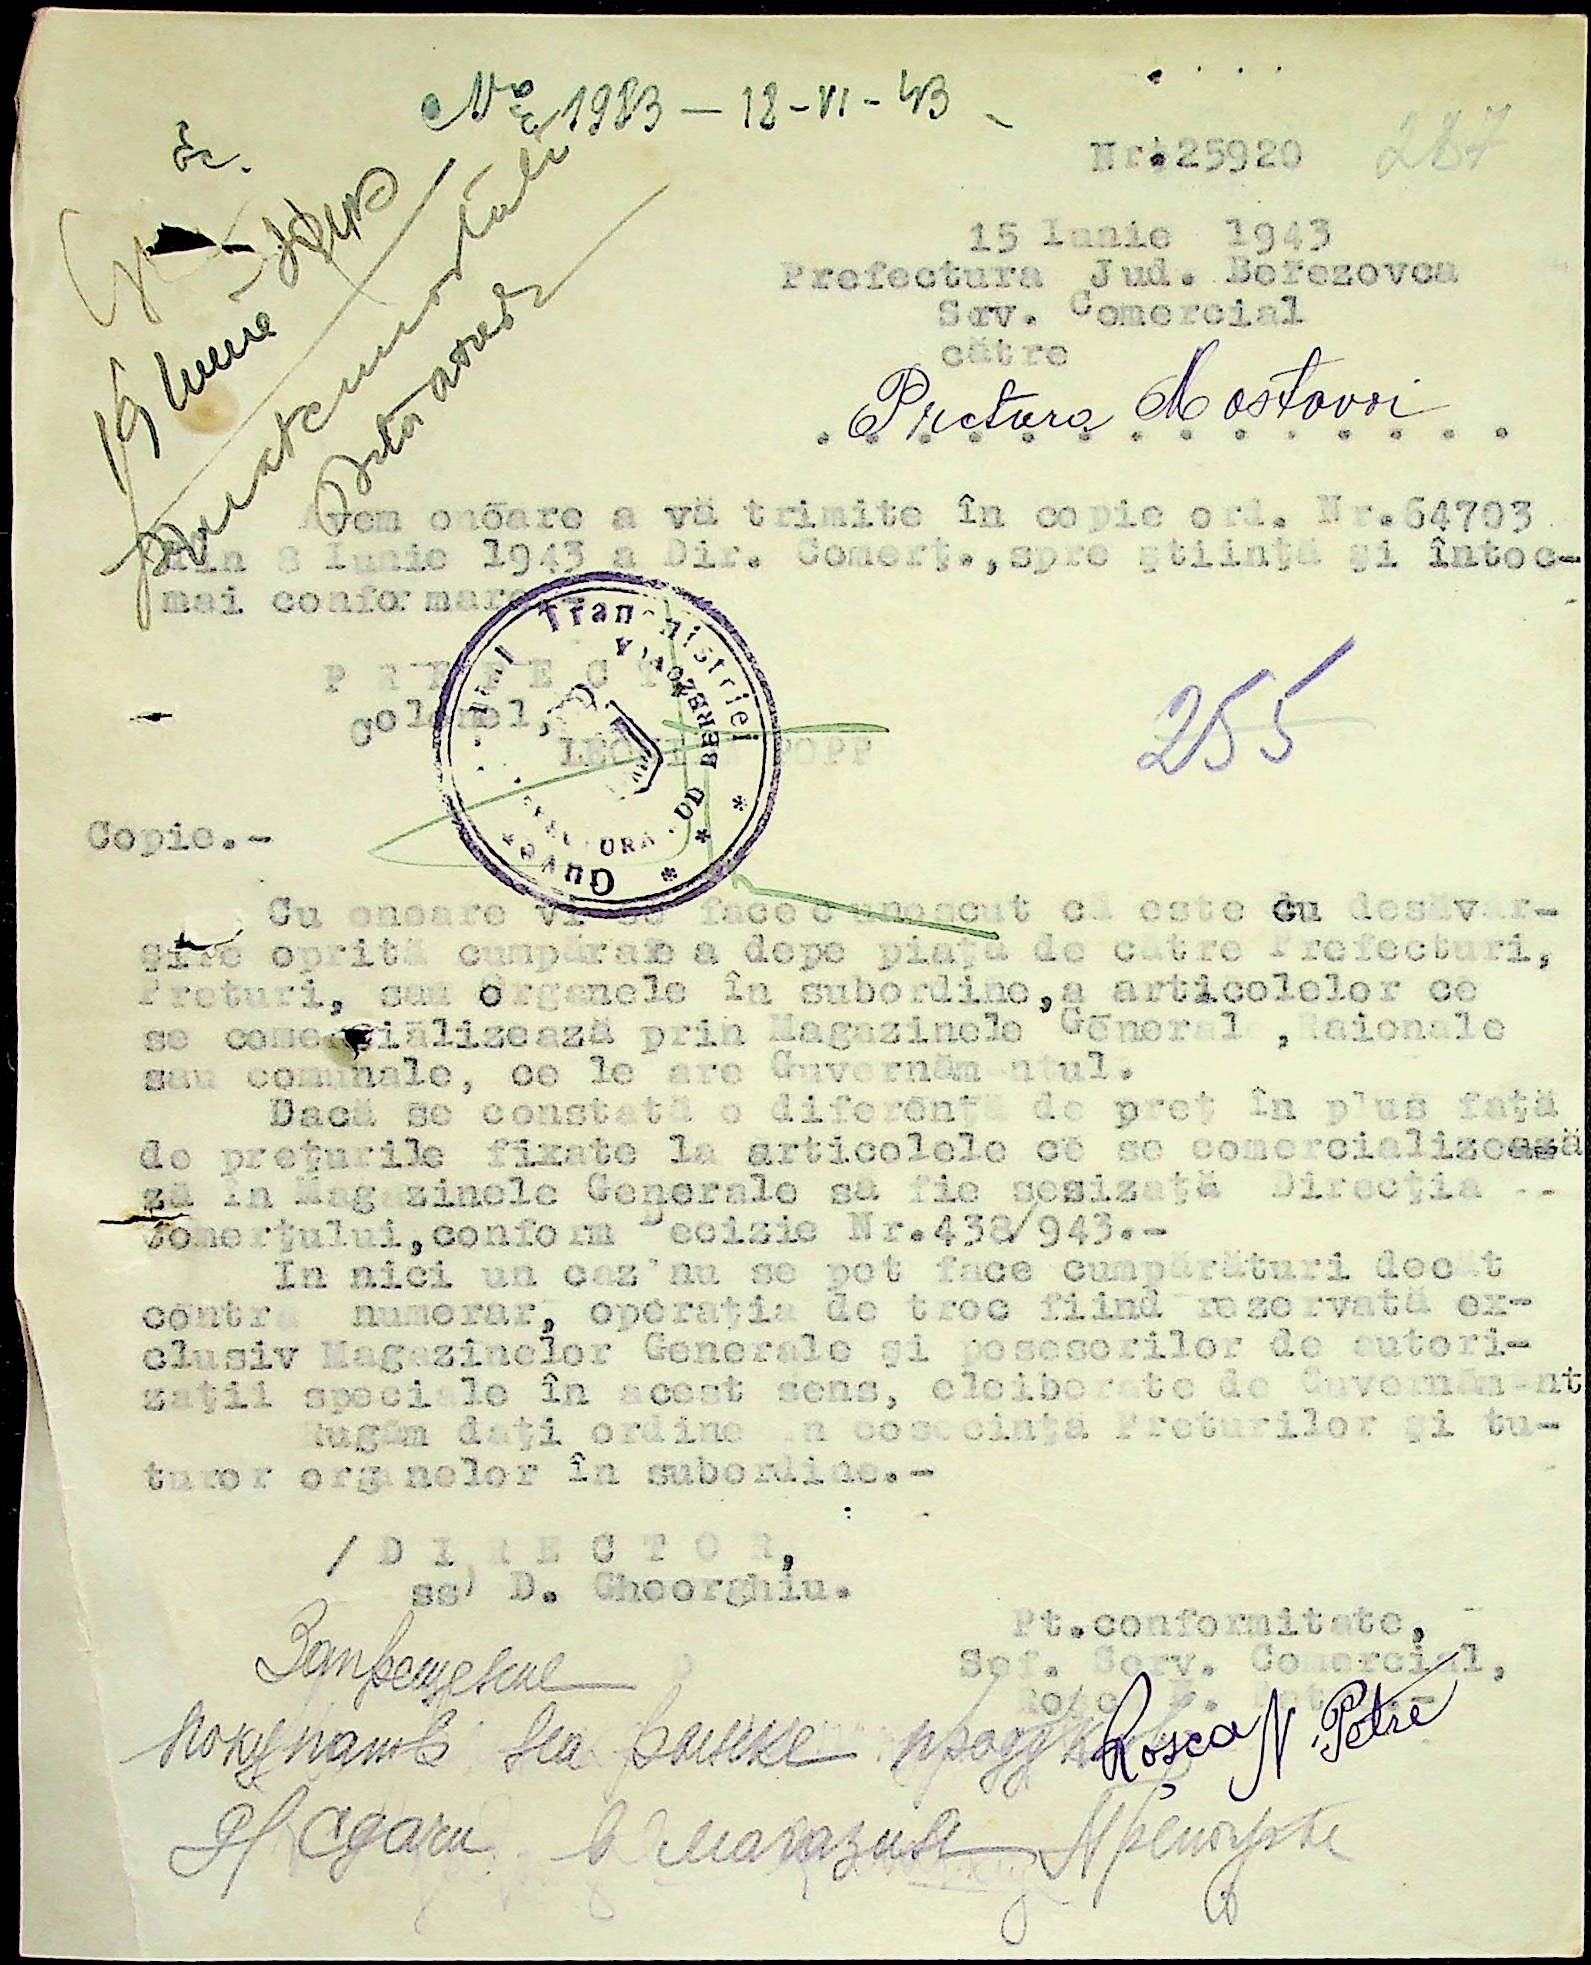 No 1983 - 18-VI-43
Nr. 25920
287
15 Iunie 1943
Prefectura Jud. Berezovca
Serv. Comercial
către
Pretura Mostovoi
Avem onoare a vă trimite în copie ord. Nr.64703
din 8 Iunie 1943 a Dir. Comerţ., spre ştiinţă şi întoc-
mai conformare.-
P R E F E C T
Colonel,
LEONIDA POPP
Guvernământul Transnistriei
PREFECTURA JUD BEREZOVCA
255
Copie.-
Cu onoare vi se face cunoscut că este cu desăvar-
şire oprită cumpărarea depe piaţa de catre Prefecturi,
Preturi, sau organele în subordine, a articolelor ce
se comercializează prin Magazinele Generale, Raionale
sau comunale, ce le are Guvernământul.
Dacă se constată o diferenţă de preţ în plus faţă
de preţurile fixate la articolele ce se comercializează
ză în Magazinele Generale să fie sesizată Direcţia --
Comerţului, conform Decizie Nr.438/943.-
In nici un caz nu se pot face cumpărături decât
contra numerar, operaţia de troc fiind rezervată ex-
clusiv Magazinelor Generale şi posesorilor de autori-
zaţii speciale în acest sens, eleiberate de Guvernământ
Rugăm daţi ordine în cosecinţă Preturilor şi tu-
turor organelor în subordine.-
/ D I R E C T O R,
ss) D. Gheorghiu.
Pt.conformitate,
Şef. Serv. Comercial,
Roşca N. Petre.-
Roşca N. Petre
Запрещение
покупать на рынке
сдачи в магазин